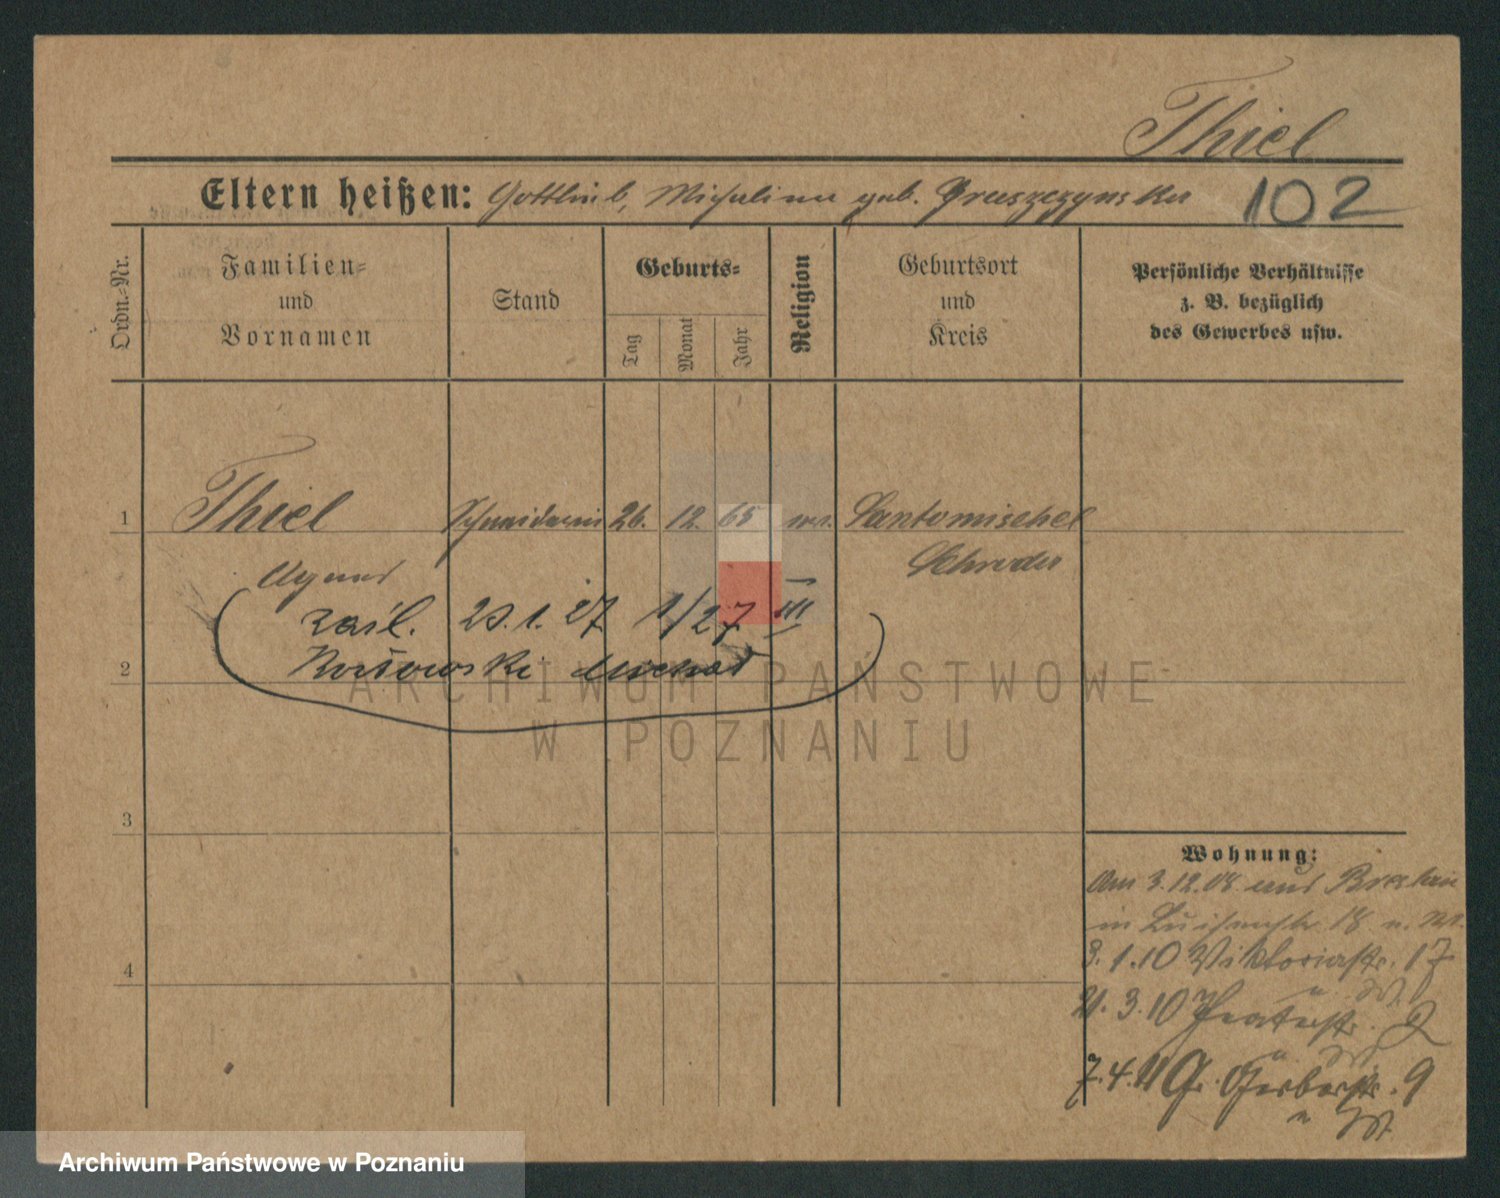 Thiel
Eltern heißen: Gottlieb, Michalina geb. Gruszczynska 102
Ordn.-Nr.
Familien-
und
Vornamen
Stand
Geburts-
Tag
Monat
Jahr
Religion
Geburtsort
und
Kreis
Persönliche Verhältnisse
z. B. bezüglich
des Gewerbes usw.
1 Thiel Schneiderin 26. 12. 65 Santomischel
Agnes Schroda
zaśl. 1/27 III
2
3
4
Wohnung:
Am 3.12.08. aus Breslau
in Luisenstr 18
3.1.10 Viktoriastr. 17
21.3.10
7.4.11 Gr. Gerberstr. 9
ARCHIWUM PAŃSTWOWE
W POZNANIU
Archiwum Państwowe w Poznaniu